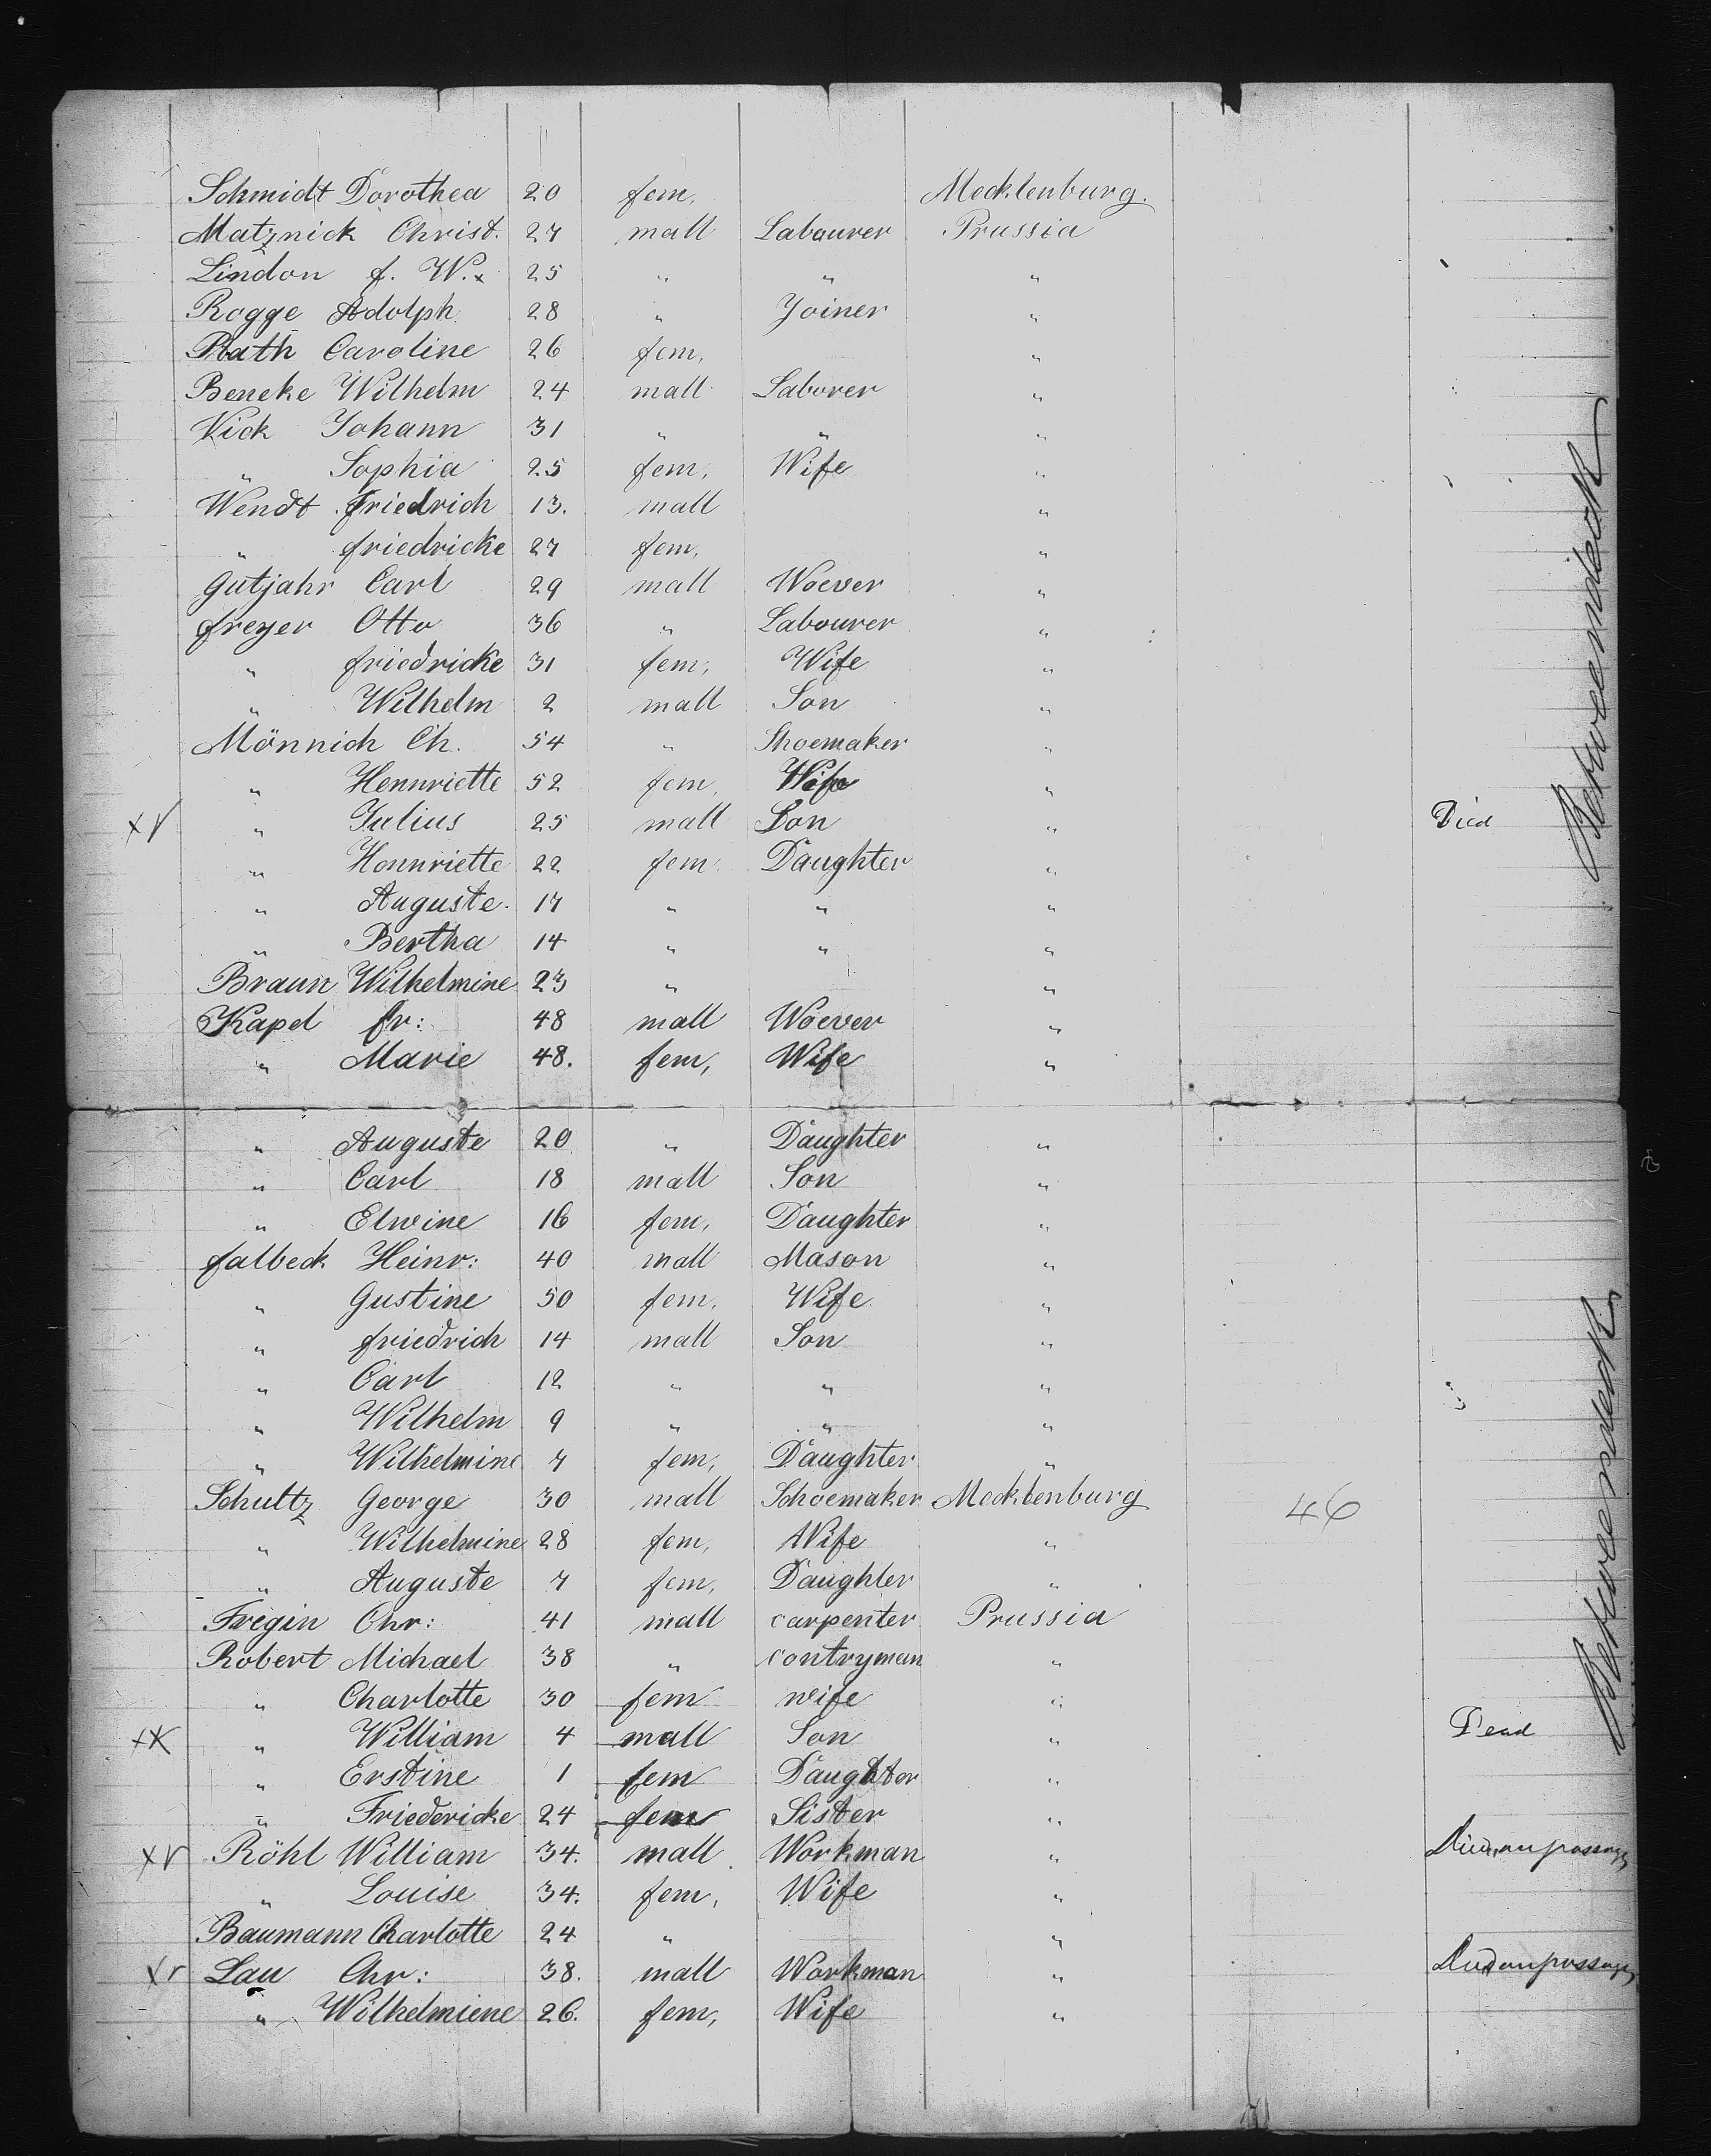 Schmidt Dorothea 20 fem, Mecklenburg.
Matznick Christ. 27 mall Labaurer Prussia
Lindon f. W. 25 " " "
Rogge Adolph 28 " Joiner "
Rath Caroline 26 fem, "
Beneke Wilhelm 24 mall Laborer "
Vick Johann 31 " " "
" Sophia 25 fem, Wife "
Wendt Friedrich 13. mall "
" friedricke 27 fem, "
Gutjahr Carl 29 mall Woever "
freyer Otto 36 " Labourer "
" friedricke 31 fem, Wife "
" Wilhelm 2 mall Son "
Mönnich Ch. 54 " Shoemaker "
" Hennriette 52 fem, Wife "
" Julius 25 mall Son " Died
" Honnriette 22 fem, Daughter "
" Auguste. 17 " " "
" Bertha 14 " " "
Braun Wilhelmine 23 " "
Kapel fr: 48 mall Woever "
" Marie 48. fem, Wife "
" Auguste 20 " Daughter "
" Carl 18 mall Son "
" Elwine 16 fem, Daughter "
falbeck Heinr: 40 mall Mason "
" Gustine 50 fem, Wife "
" friedrich 14 mall Son "
" Carl 12 " " "
" Wilhelm 9 " " "
" Wilhelmine 7 fem, Daughter "
Schultz George 30 mall Schoemaker Mecklenburg 46
" Wilhelmine 28 fem, Wife "
" Auguste 7 fem, Daughter "
Fregin Chr: 41 mall carpenter Prussia
Robert Michael 38 " contryman "
" Charlotte 30 fem wife "
XX " William 4 mall Son " Dead
" Erstine 1 fem Daughter "
" Friedericke 24 fem Sister "
Röhl William 34. mall Workman "
" Louise 34. fem, Wife "
Baumann Charlotte 24 " "
Lau Chr: 38. mall Workman "
" Wilhelmiene 26. fem, Wife "
Betweendeck
Betweendeck